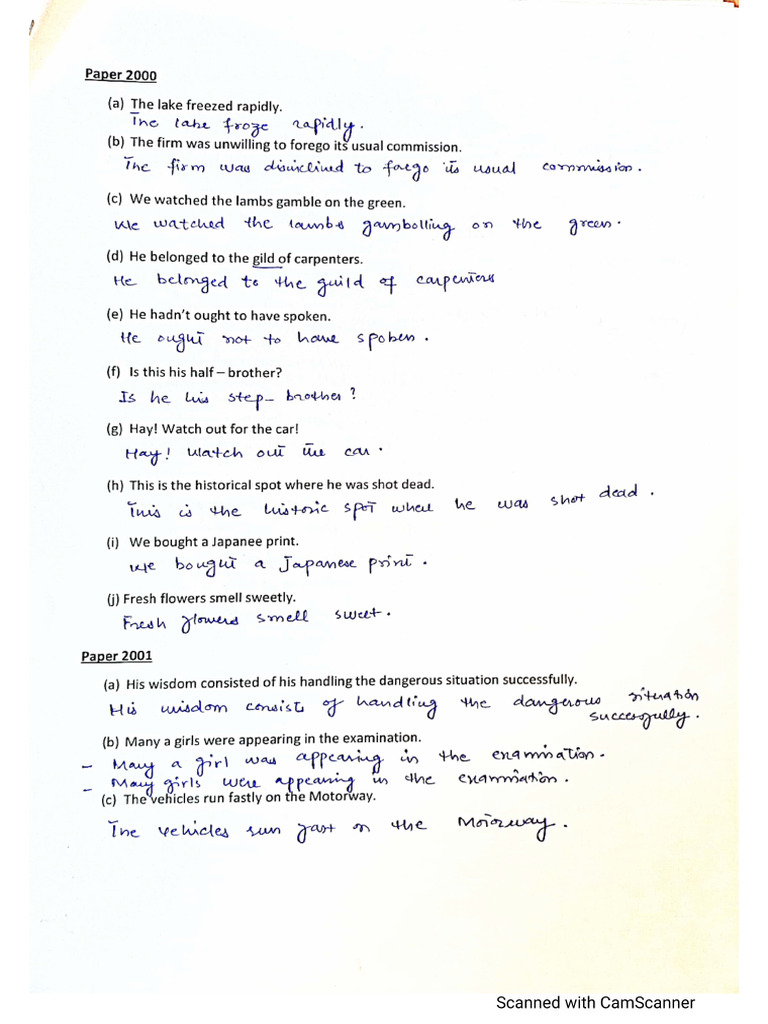 Paper 2000
(a) The lake freezed rapidly.
The lake froze rapidly.
(b) The firm was unwilling to forego its usual commission.
The firm was disinclined to forego its usual commission.
(c) We watched the lambs gamble on the green.
We watched the lambs gambolling on the green.
(d) He belonged to the gild of carpenters.
He belonged to the guild of carpenters
(e) He hadn't ought to have spoken.
He ought not to have spoken.
(f) Is this his half – brother?
Is he his step- brother?
(g) Hay! Watch out for the car!
Hay! Watch out the car.
(h) This is the historical spot where he was shot dead.
This is the historic spot where he was shot dead.
(i) We bought a Japanee print.
We bought a Japanese print.
(j) Fresh flowers smell sweetly.
Fresh flowers smell sweet.
Paper 2001
(a) His wisdom consisted of his handling the dangerous situation successfully.
His wisdom consists of handling the dangerous situation
successfully.
(b) Many a girls were appearing in the examination.
- Many a girl was appearing in the examination.
- Many girls were appearing in the examination.
(c) The vehicles run fastly on the Motorway.
The vehicles run fast on the Motorway.
Scanned with CamScanner